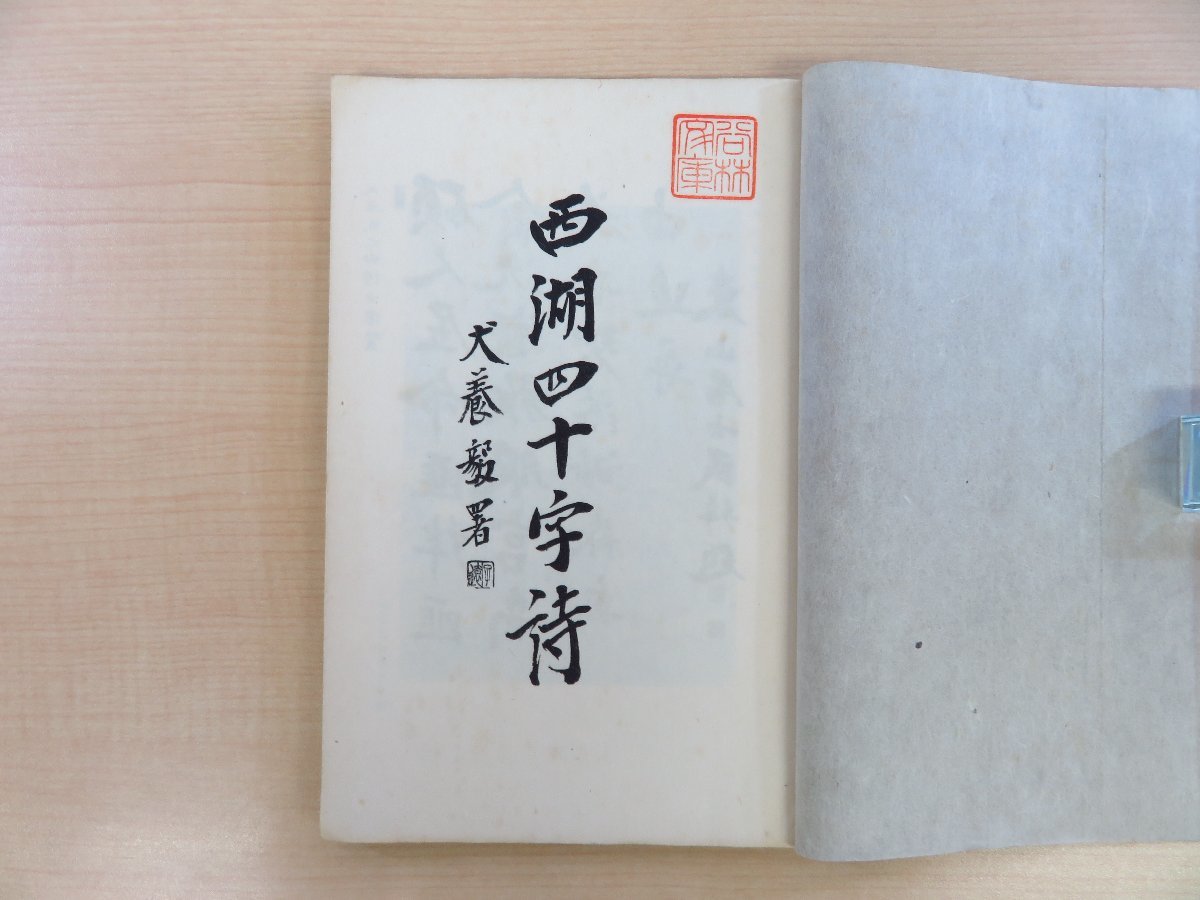 谷林文庫
西湖四十字詩
犬養毅署